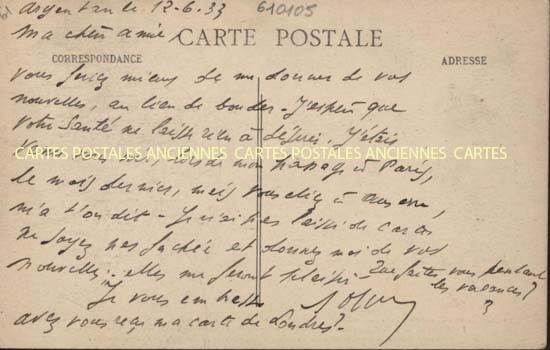 Argentan le 12-6.33
610105
Ma chère amie,
CARTE POSTALE
CORRESPONDANCE
ADRESSE
vous feriez mieux de me donner de vos
nouvelles, au lieu de bouder - J'espère que
votre santé ne laisse rien à désirer. J'étais
CARTES POSTALES ANCIENNES CARTES POSTALES ANCIENNES CARTES
lors de mon passage à Paris,
le mois dernier, mais vous étiez à
m'a t'on dit - Je n'ai pas laissé de cartes
Ne soyez pas fâchée et donnez moi de vos
nouvelles : elles me feront plaisir - Que faites vous pendant
les vacances ?
Je vous embrasse
avez vous reçu ma carte de Londres ? -